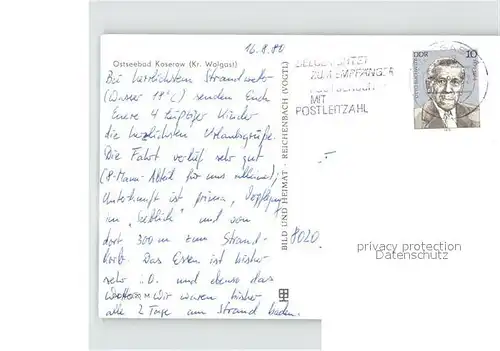 16.8.80
Ostseebad Koserow (Kr. Wolgast)
Bei herrlichstem Strandwetter
(Wasser 19°C) senden Euch
Eure 4 Leipziger Kinder
die herzlichsten Urlaubsgrüße.
Die Fahrt verlief sehr gut
(8-Mann-Abteil für uns alleine),
Unterkunft ist prima, Verpflegung
im "Seeblick" und von
dort 300 m zum Strand-
korb. Das Essen ist bisher
sehr i.O. und ebenso das
Wetter. Wir waren bisher
alle 2 Tage am Strand baden.
BILD UND HEIMAT · REICHENBACH (VOGTL)
ZUM EMPFÄNGER
MIT
POSTLEITZAHL
DDR 10
8020
privacy protection
Datenschutz